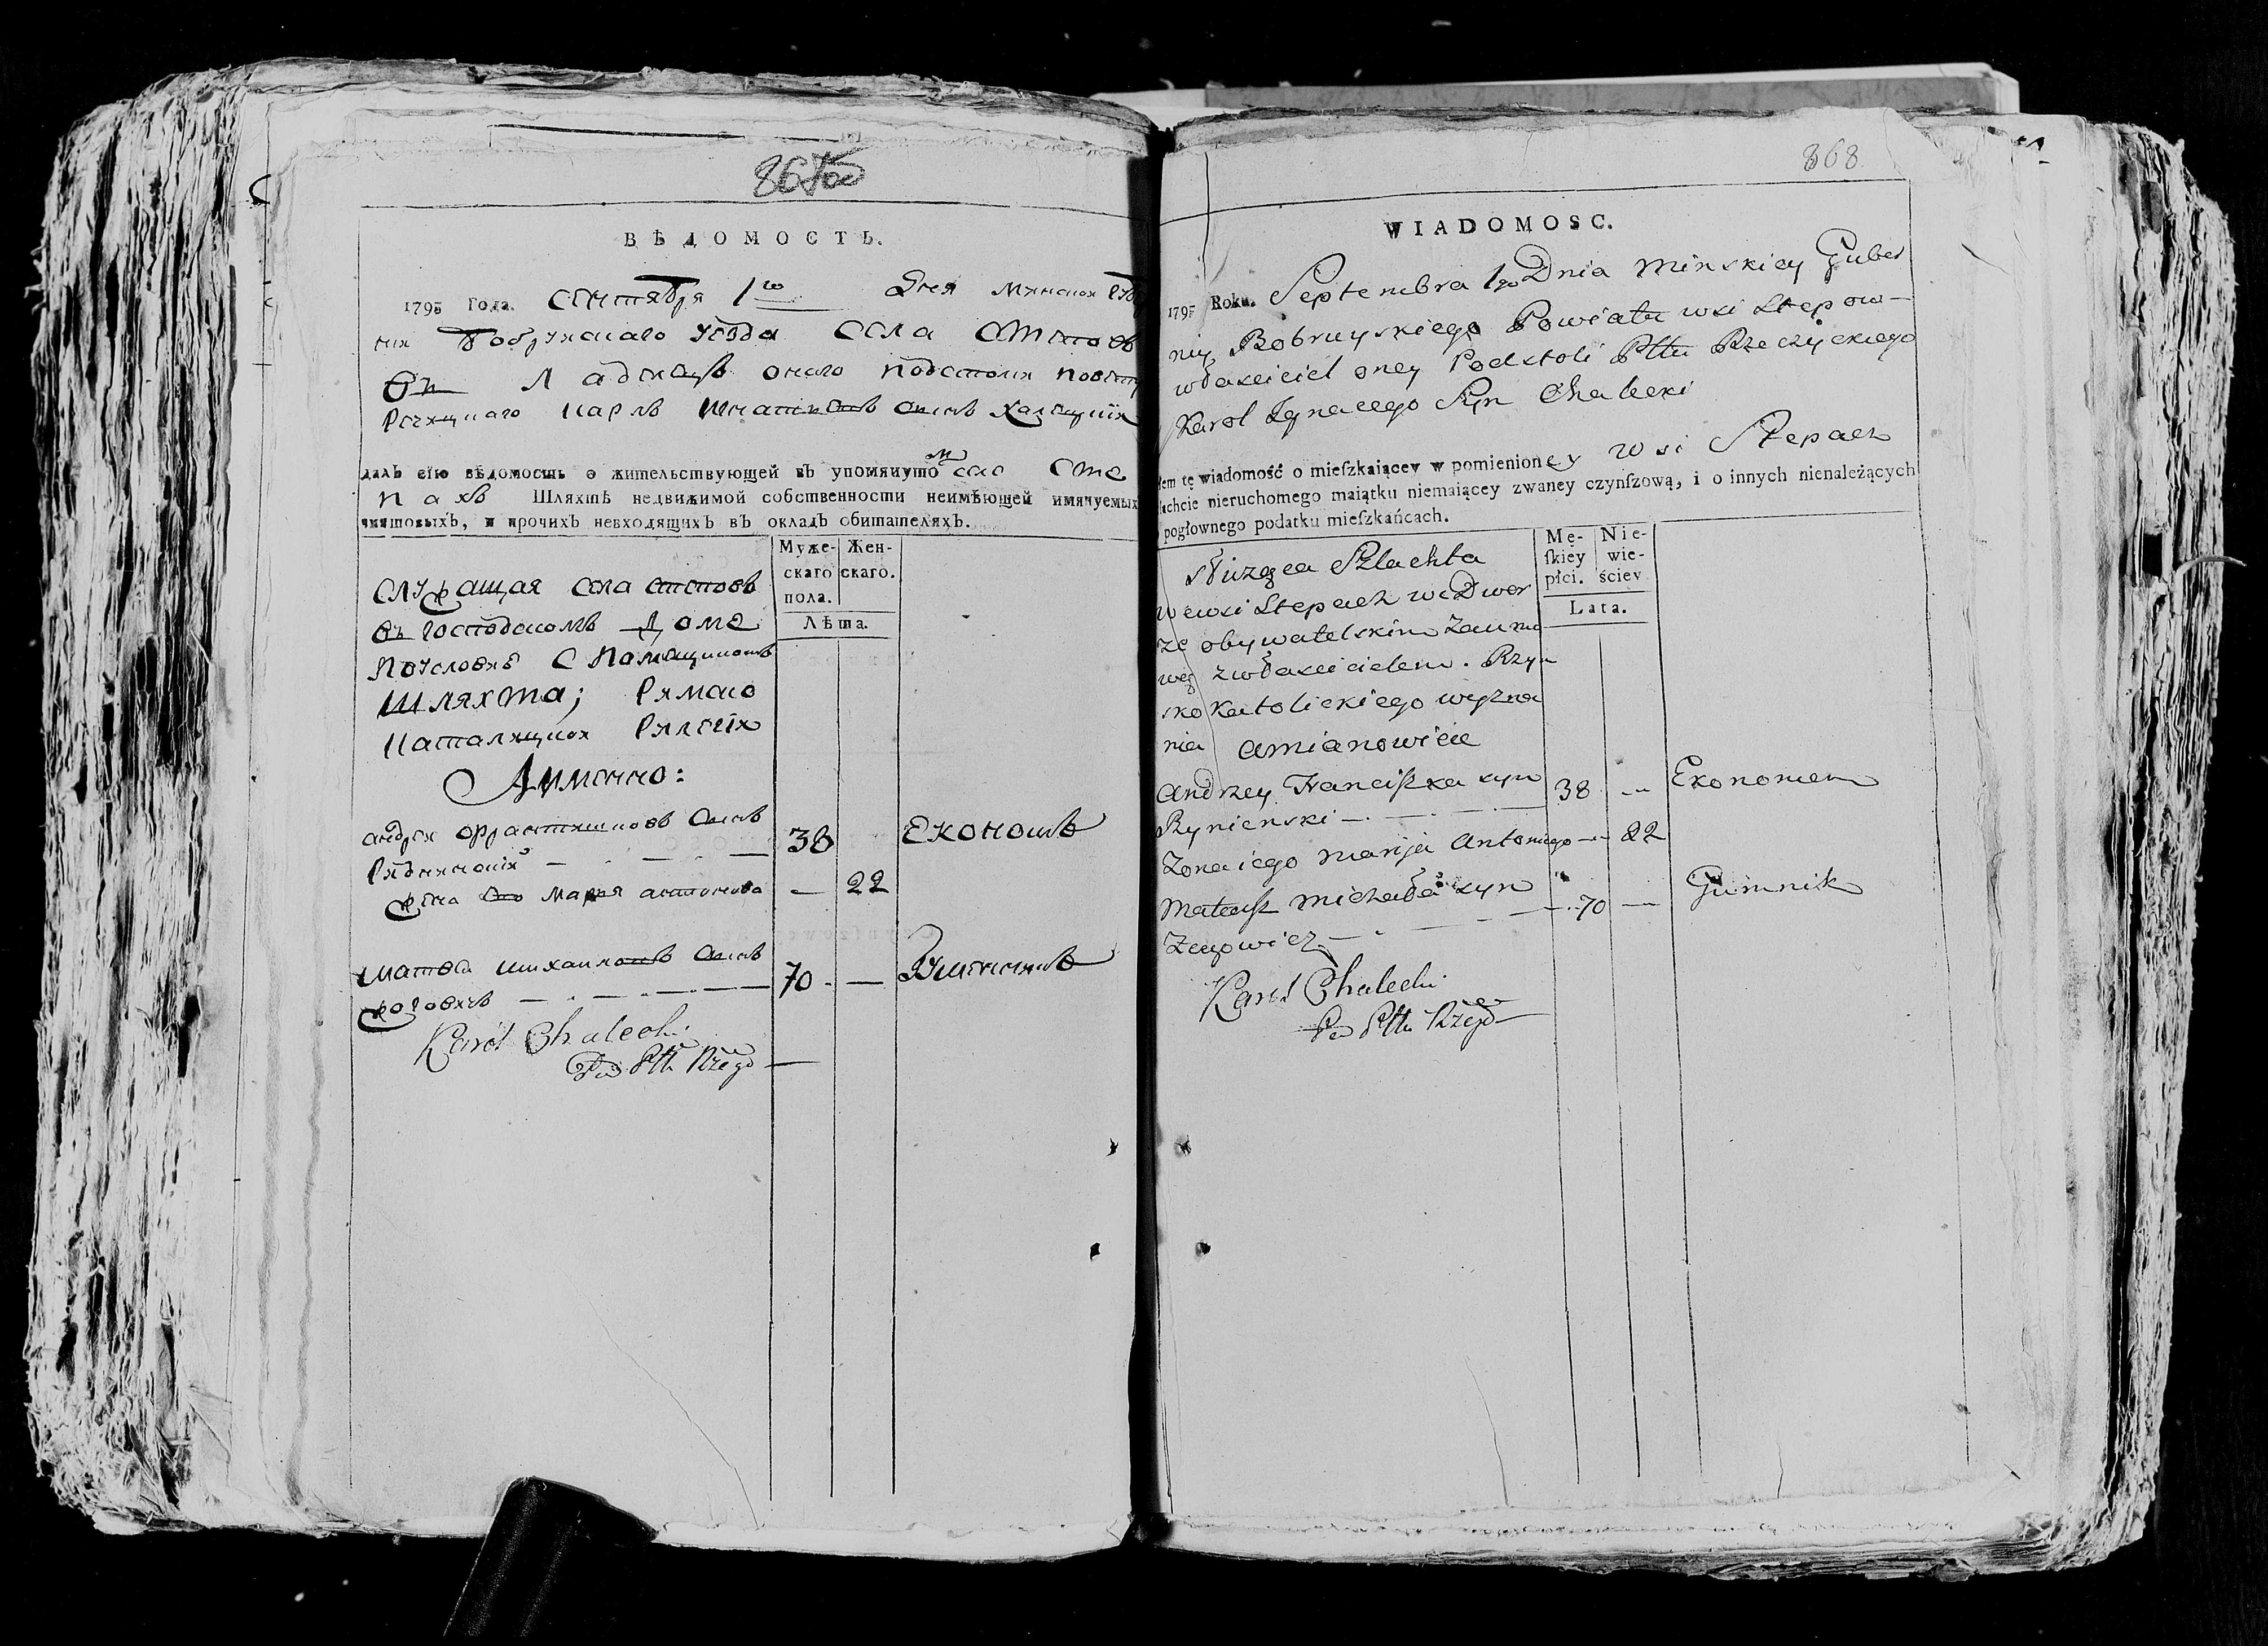 ВѢДОМОСТЬ.
1795 Года. Сентября 1го Дня Минской Губер
нии Бобруйскаго уезда села Степов
Владелецъ онаго подстолий повету
Речицкаго Карлъ Игнатиевъ сынъ Халецкий
далъ сію вѣдомость о жительствующей въ упомянутомъ селе Сте
пахъ Шляхтѣ недвижимой собственности неимѣющей имянуемыхъ
чиншовыхъ, и прочихъ невходящихъ въ окладъ обитателяхъ.
Муже- Жен-
скаго скаго.
пола.
Лѣта.
Служащая села Степовъ
въ господскомъ доме
по условию с помещикомъ
Шляхта; Римско
Католицкой
Аимянно:
Андрей Францишковъ сынъ 38 Економъ
жена его Марья Антонова — 22
Матвей Михаиловъ сынъ 70 —
Karol Chalecki
Pd Pttu Rzego
868
WIADOMOSC.
1795 Roku. Septembra 1go Dnia Minskiey Guber
nij Bobruyskiego Powiatu wsi Stepow
właściciel oney Podstoli Pttu Rzeczyckiego
Karol Ignacego Syn Chalecki
łem tę wiadomość o mieſzkaiącey w pomienioney wsi Stepach
lachcie nieruchomego maiątku niemaiącey zwaney czynſzową, i o innych nienależących
pogłownego podatku mieſzkańcach.
Mę- Nie-
ſkiey wie-
płci. ściey
Lata.
Służąca Szlachta
we wsi Stepach we Dwor
ze obywatelskim za umo
wą z właścicielem. Rzym
sko Katolickiego wyzna
nia amianowicie
Andrzey Franciszka syn 38 — Ekonomem
Rynienski
Zona iego Marija Antoniego — 22
Mateusz Michała syn 70 — Gumnik
Zegowicz
Karol Chalecki
Pd Pttu Rzego